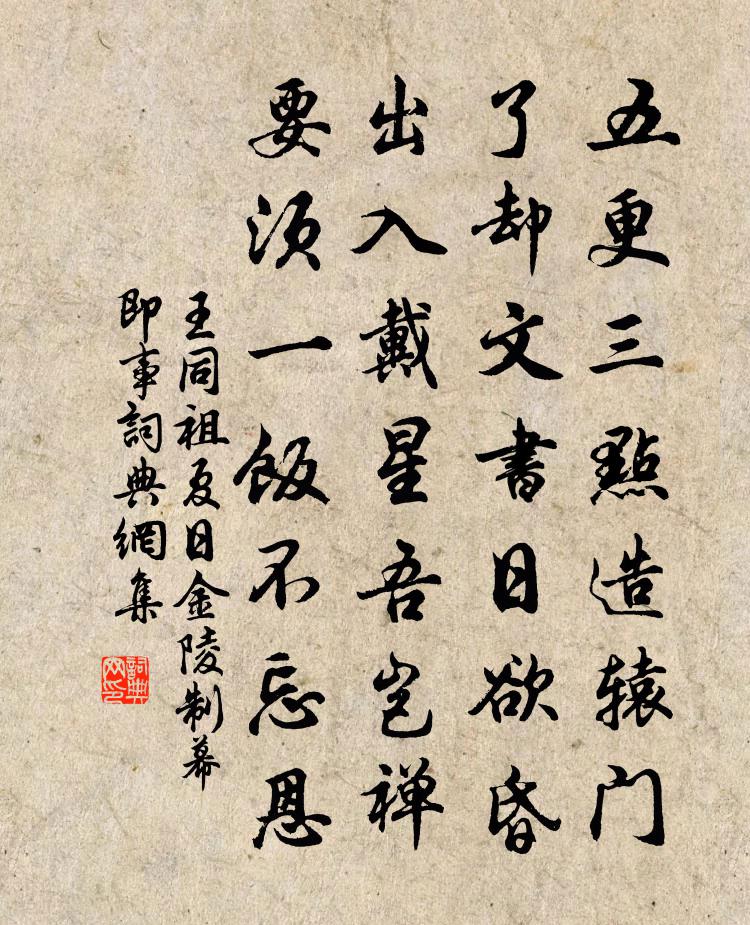 五更三點造辕门
了却文書日欲昏
出入戴星吾岂禅
要须一飯不忘恩
王同祖夏日金陵制幕
即事詞典網集
詞典
网印